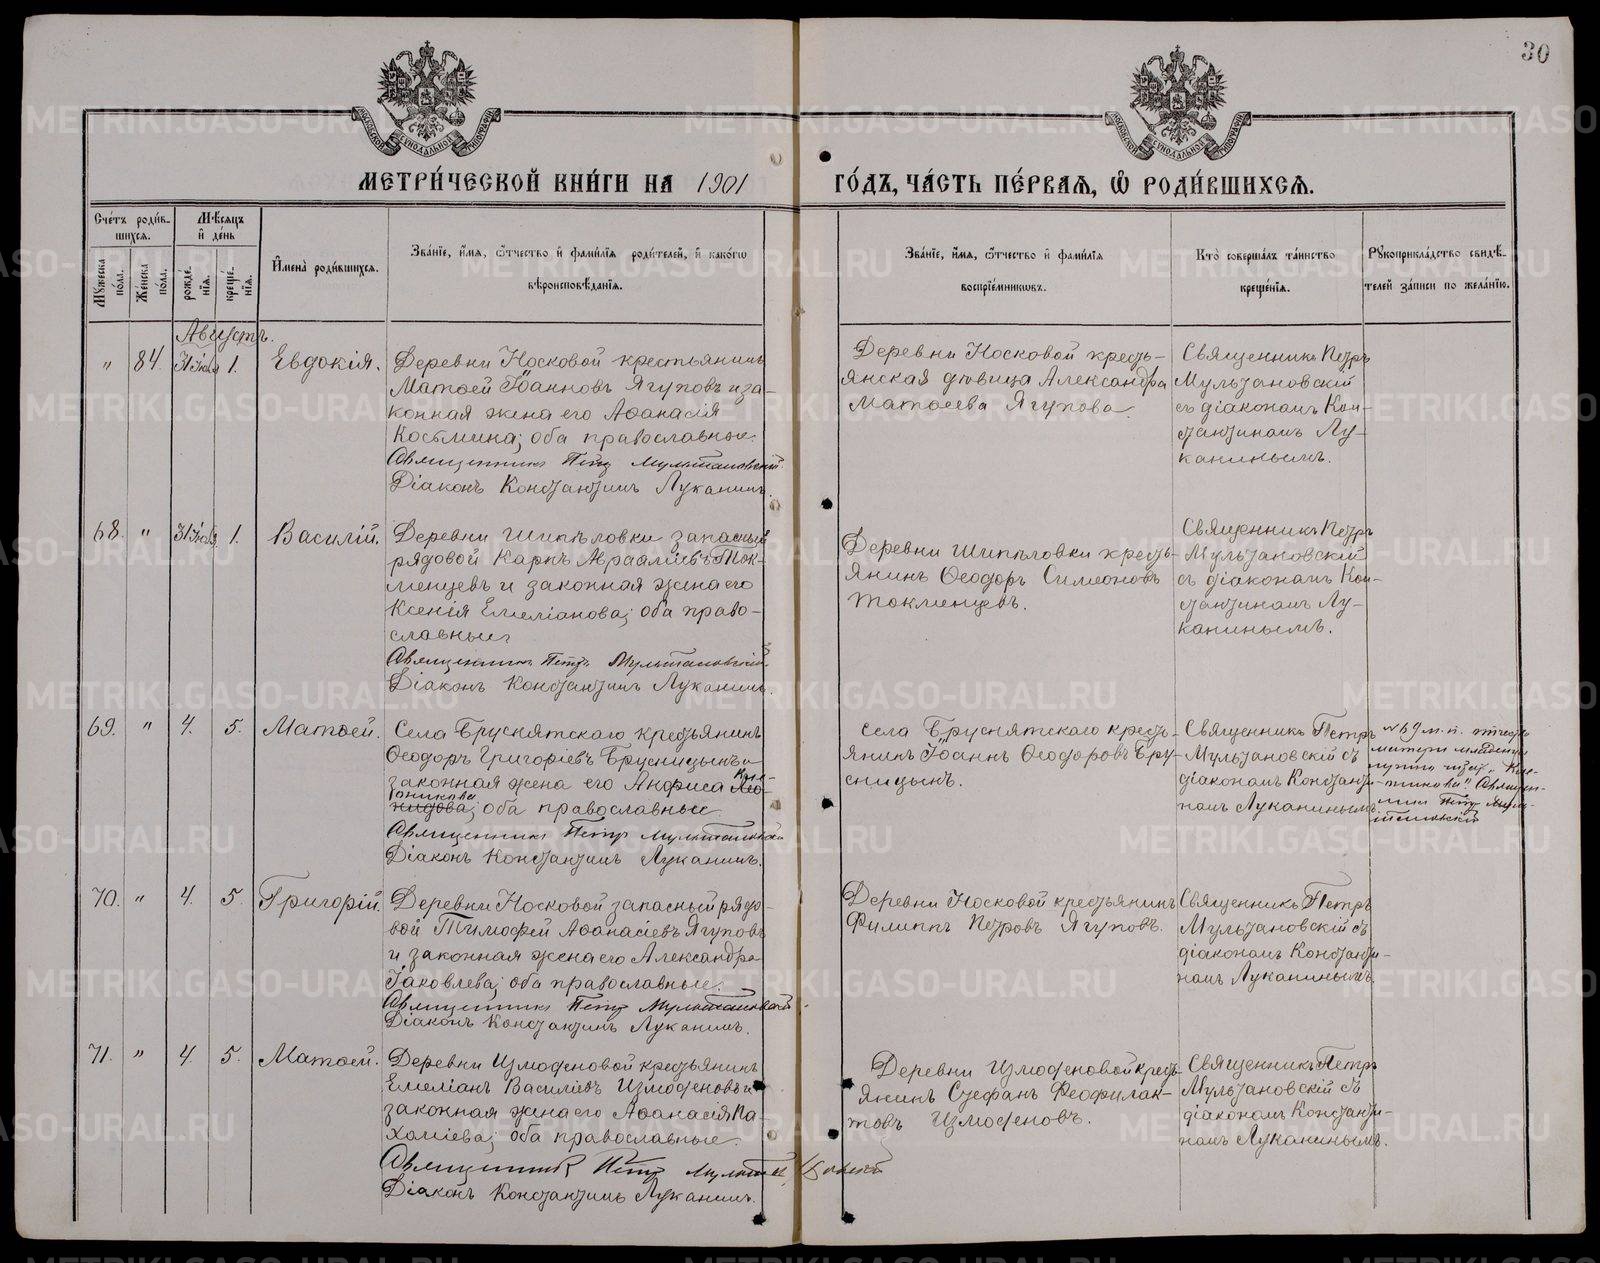 30
МОСКОВСКОЙ СѴНОДАЛЬНОЙ ТИПОГРАФІИ
МОСКОВСКОЙ СѴНОДАЛЬНОЙ ТИПОГРАФІИ
МЕТРИ́ЧЕСКОЙ КНИ́ГИ НА 1901
ГО́ДЪ, ЧА́СТЬ ПЕ́РВАЯ, Ѡ҆ РОДИ́ВШИХСЯ.
Сче́тъ роди́в-
шихся.
Мѣ́сяцъ
и҆ де́нь
Мꙋ́жеска по́ла.
Же́нска по́ла.
рожде́нїя.
креще́нїя.
И҆мена̀ роди́вшихся.
Зва́нїе, и҆́мя, ѻ҆́тчество и҆ фами́лїя роди́телей, и҆ како́гѡ
вѣроисповѣ́данїя.
Зва́нїе, и҆́мя, ѻ҆́тчество и҆ фами́лїя
воспрїе́мникѡвъ.
Кто̀ соверша́лъ та́инство
креще́нїя.
Рꙋкоприкла́дство свидѣ́-
телей за́писи по жела́нїю.
Августъ.
" 84. 31 Іюля 1. Евдокія.
Деревни Носковой крестьянинъ
Матѳей Іоанновъ Ягуповъ и за-
конная жена его Аѳанасія
Косьмина; оба православные.
Священникъ Петръ Мультановскій.
Діаконъ Константинъ Луканинъ.
Деревни Носковой кресть-
янская дѣвица Александра
Матѳеева Ягупова.
Священникъ Петръ
Мультановскій
съ діакономъ Кон-
стантиномъ Лу-
канинымъ.
68. " 31 Іюля 1. Василій.
Деревни Шипѣловки запасный
рядовой Карпъ Авраамievъ Ток-
менцевъ и законная жена его
Ксенія Емеліанова; оба право-
славные.
Священникъ Петръ Мультановскій.
Діаконъ Константинъ Луканинъ.
Деревни Шипѣловки кресть-
янинъ Ѳеодоръ Симеоновъ
Токменцевъ.
Священникъ Петръ
Мультановскій
съ діакономъ Кон-
стантиномъ Лу-
канинымъ.
69. " 4. 5. Матѳей.
Села Бруснятскаго крестьянинъ
Ѳеодоръ Григоріевъ Брусницынъ и
законная жена его Анфиса
оба православные.
Священникъ Петръ Мультановскій
Діаконъ Константинъ Луканинъ.
Села Бруснятскаго кресть-
янинъ Іоаннъ Ѳеодоровъ Бру-
сницынъ.
Священникъ Петръ
Мультановскій съ
діакономъ Константи-
номъ Луканинымъ.
№ 69 м. п.
матери младенца
нужно
Священ-
никъ Петръ Муль-
тановскій
70. " 4. 5. Григорій.
Деревни Носковой запасный рядо-
вой Тимофей Аѳанасіевъ Ягуповъ
и законная жена его Александра
Іаковлева; оба православные.
Священникъ Петръ Мультановскій.
Діаконъ Константинъ Луканинъ.
Деревни Носковой крестьянинъ
Филиппъ Петровъ Ягуповъ.
Священникъ Петръ
Мультановскій съ
діакономъ Константи-
номъ Луканинымъ.
71. " 4. 5. Матѳей.
Деревни Измоденовой крестьянинъ
Емеліанъ Василіевъ Измоденовъ и
законная жена его Аѳанасія Па-
хоміева; оба православные.
Священникъ Петръ Мультановскій
Діаконъ Константинъ Луканинъ.
Деревни Измоденовой кресть-
янинъ Стефанъ Феофилак-
товъ Измоденовъ.
Священникъ Петръ
Мультановскій съ
діакономъ Константи-
номъ Луканинымъ.
METRIKI.GASO-URAL.RU